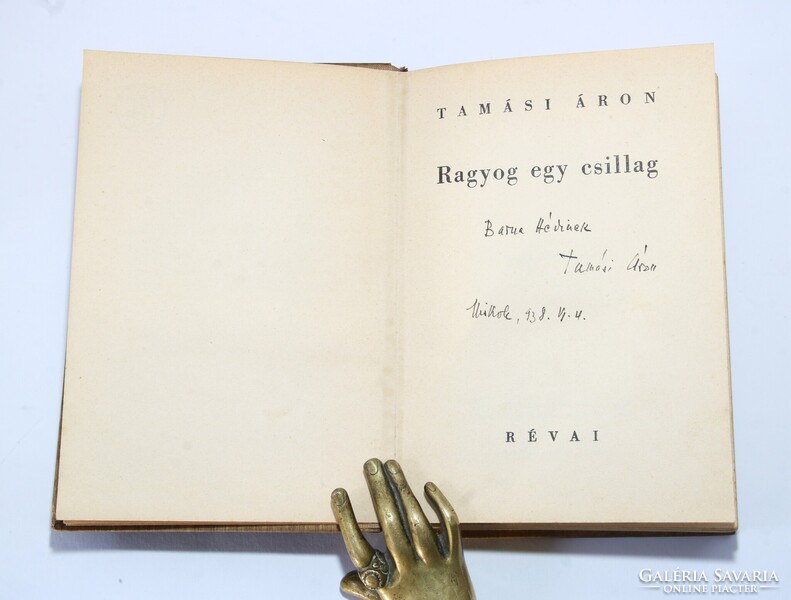 TAMÁSI ÁRON
Ragyog egy csillag
Barna Hédinek
Tamási Áron
Miskolc, 938.
RÉVAI
GALÉRIA SAVARIA
ONLINE PIACTÉR